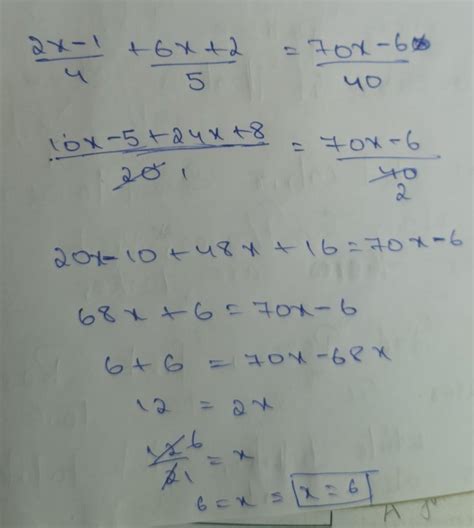 2x-1/4 + 6x+2/5 = 70x-6/40
10x-5+24x+8/20 1 = 70x-6/40 2
20x-10+48x+16=70x-6
68x+6=70x-6
6+6 = 70x-68x
12 = 2x
12 6/2 1 = x
6=x = x=6